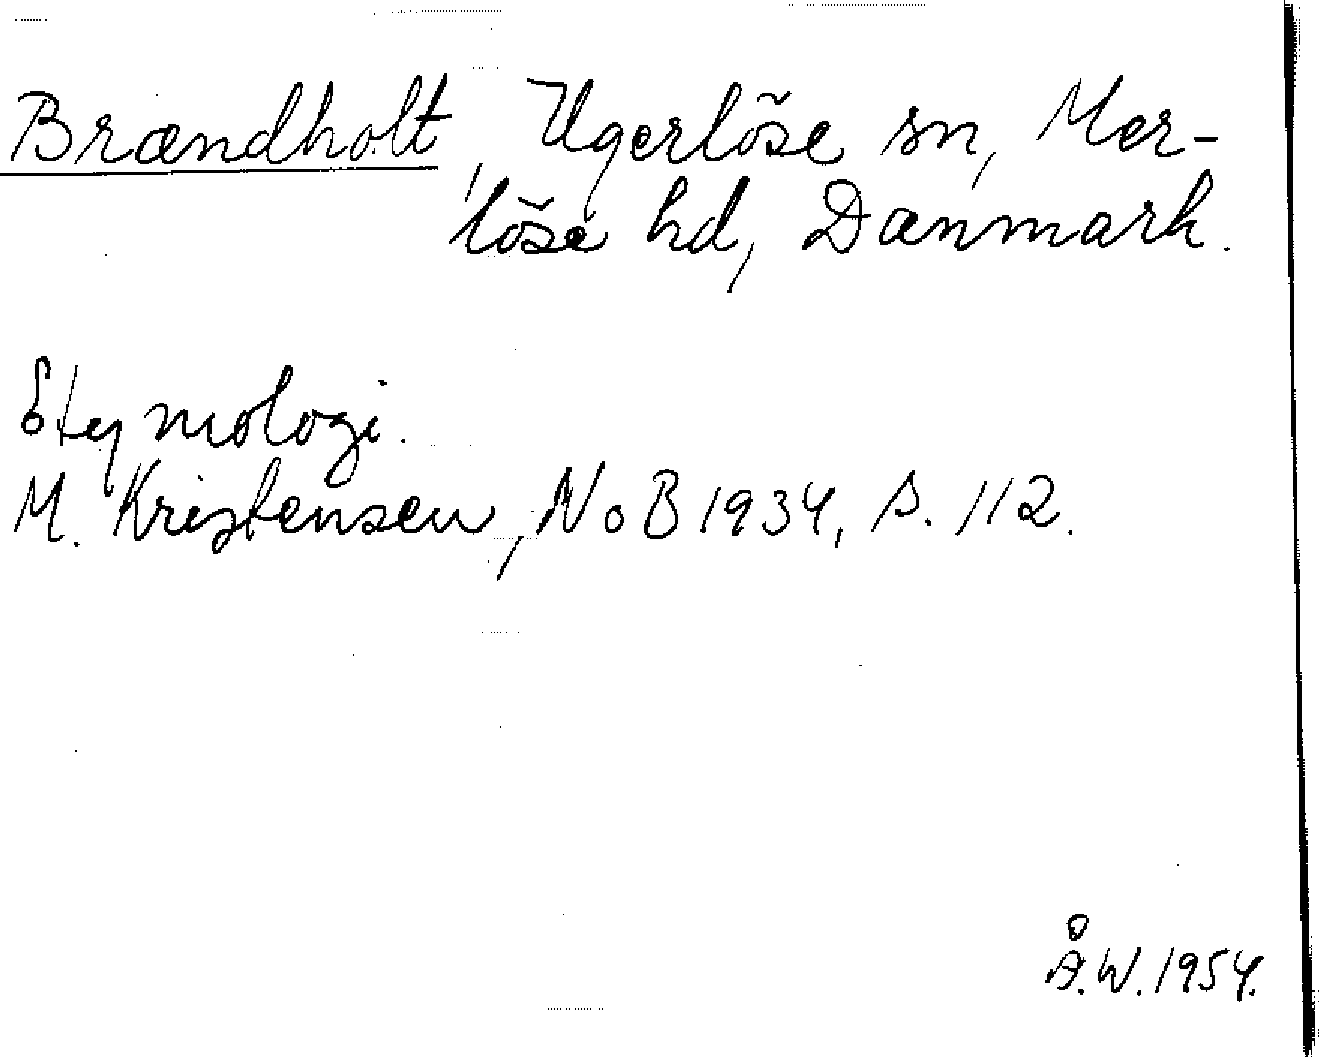 Brændholt, Ugerlöse sn, Mer-
löse hd, Danmark.
Etymologi.
M. Kristensen, NoB 1934, s. 112.
Å.W. 1954.